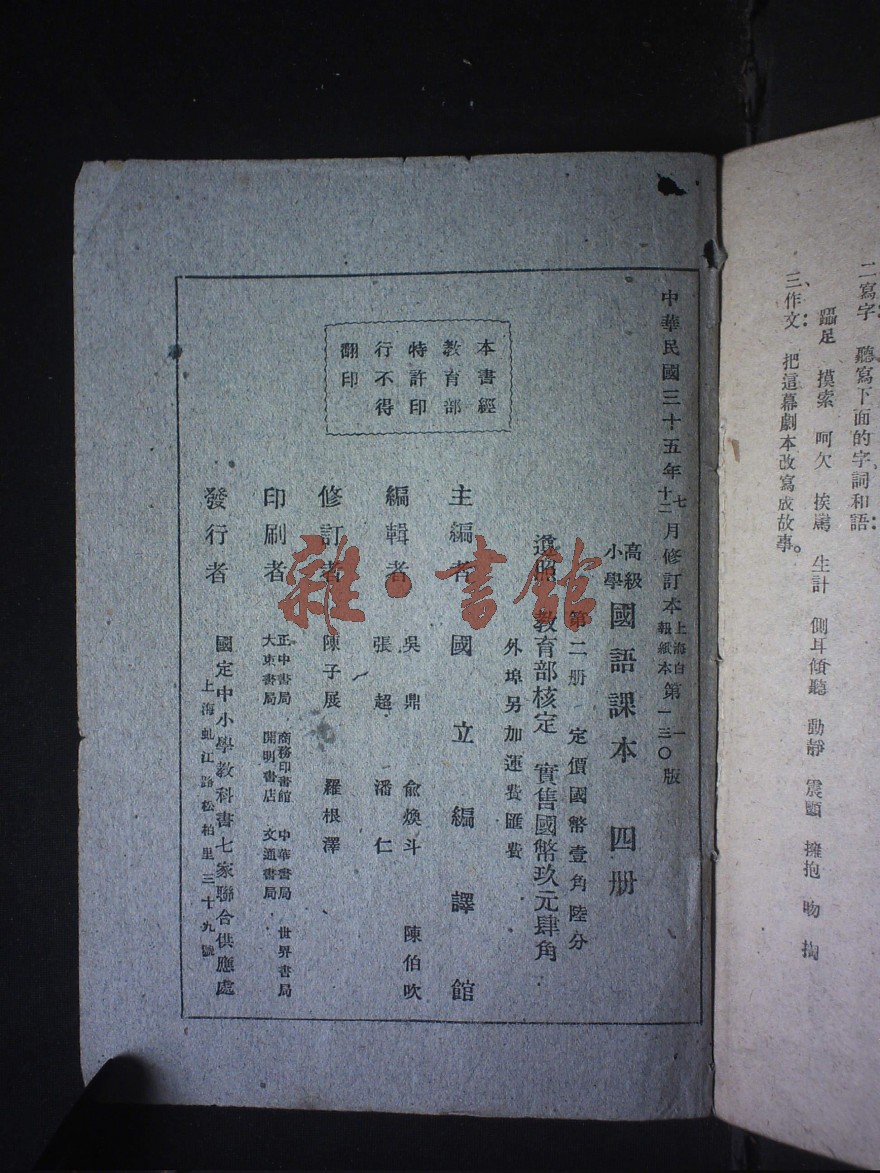 二、寫字：聽寫下面的字、詞和語：
躡足 摸索 呵欠 挨罵 生計 側耳傾聽 動靜 震顫 擁抱 吻 掏
三、作文：把這幕劇本改寫成故事。
中華民國三十五年七月修訂本上海白報紙本第一三〇版
十二
高級小學 國語課本 四册
第二册 定價國幣壹角陸分
遵照教育部核定 實售國幣玖元肆角
外埠另加運費匯費
主編者 國立編譯館
編輯者 吳鼎 俞煥斗 陳伯吹
張超 潘仁
修訂者 陳子展 羅根澤
印刷者 正中書局 商務印書館 中華書局 世界書局
大東書局 開明書店 文通書局
發行者 國定中小學教科書七家聯合供應處
上海虬江路松柏里三十九號
本書經
教育部
特許印
行不得
翻印
雜·書館